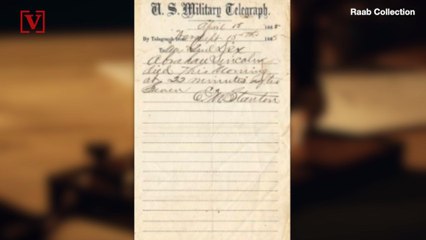 Raab Collection
U. S. Military Telegraph.
April 15 186
By Telegraph from War Dept 15th 1865
To
Abraham Lincoln
died this morning
at 22 minutes after
Seven
E M Stanton